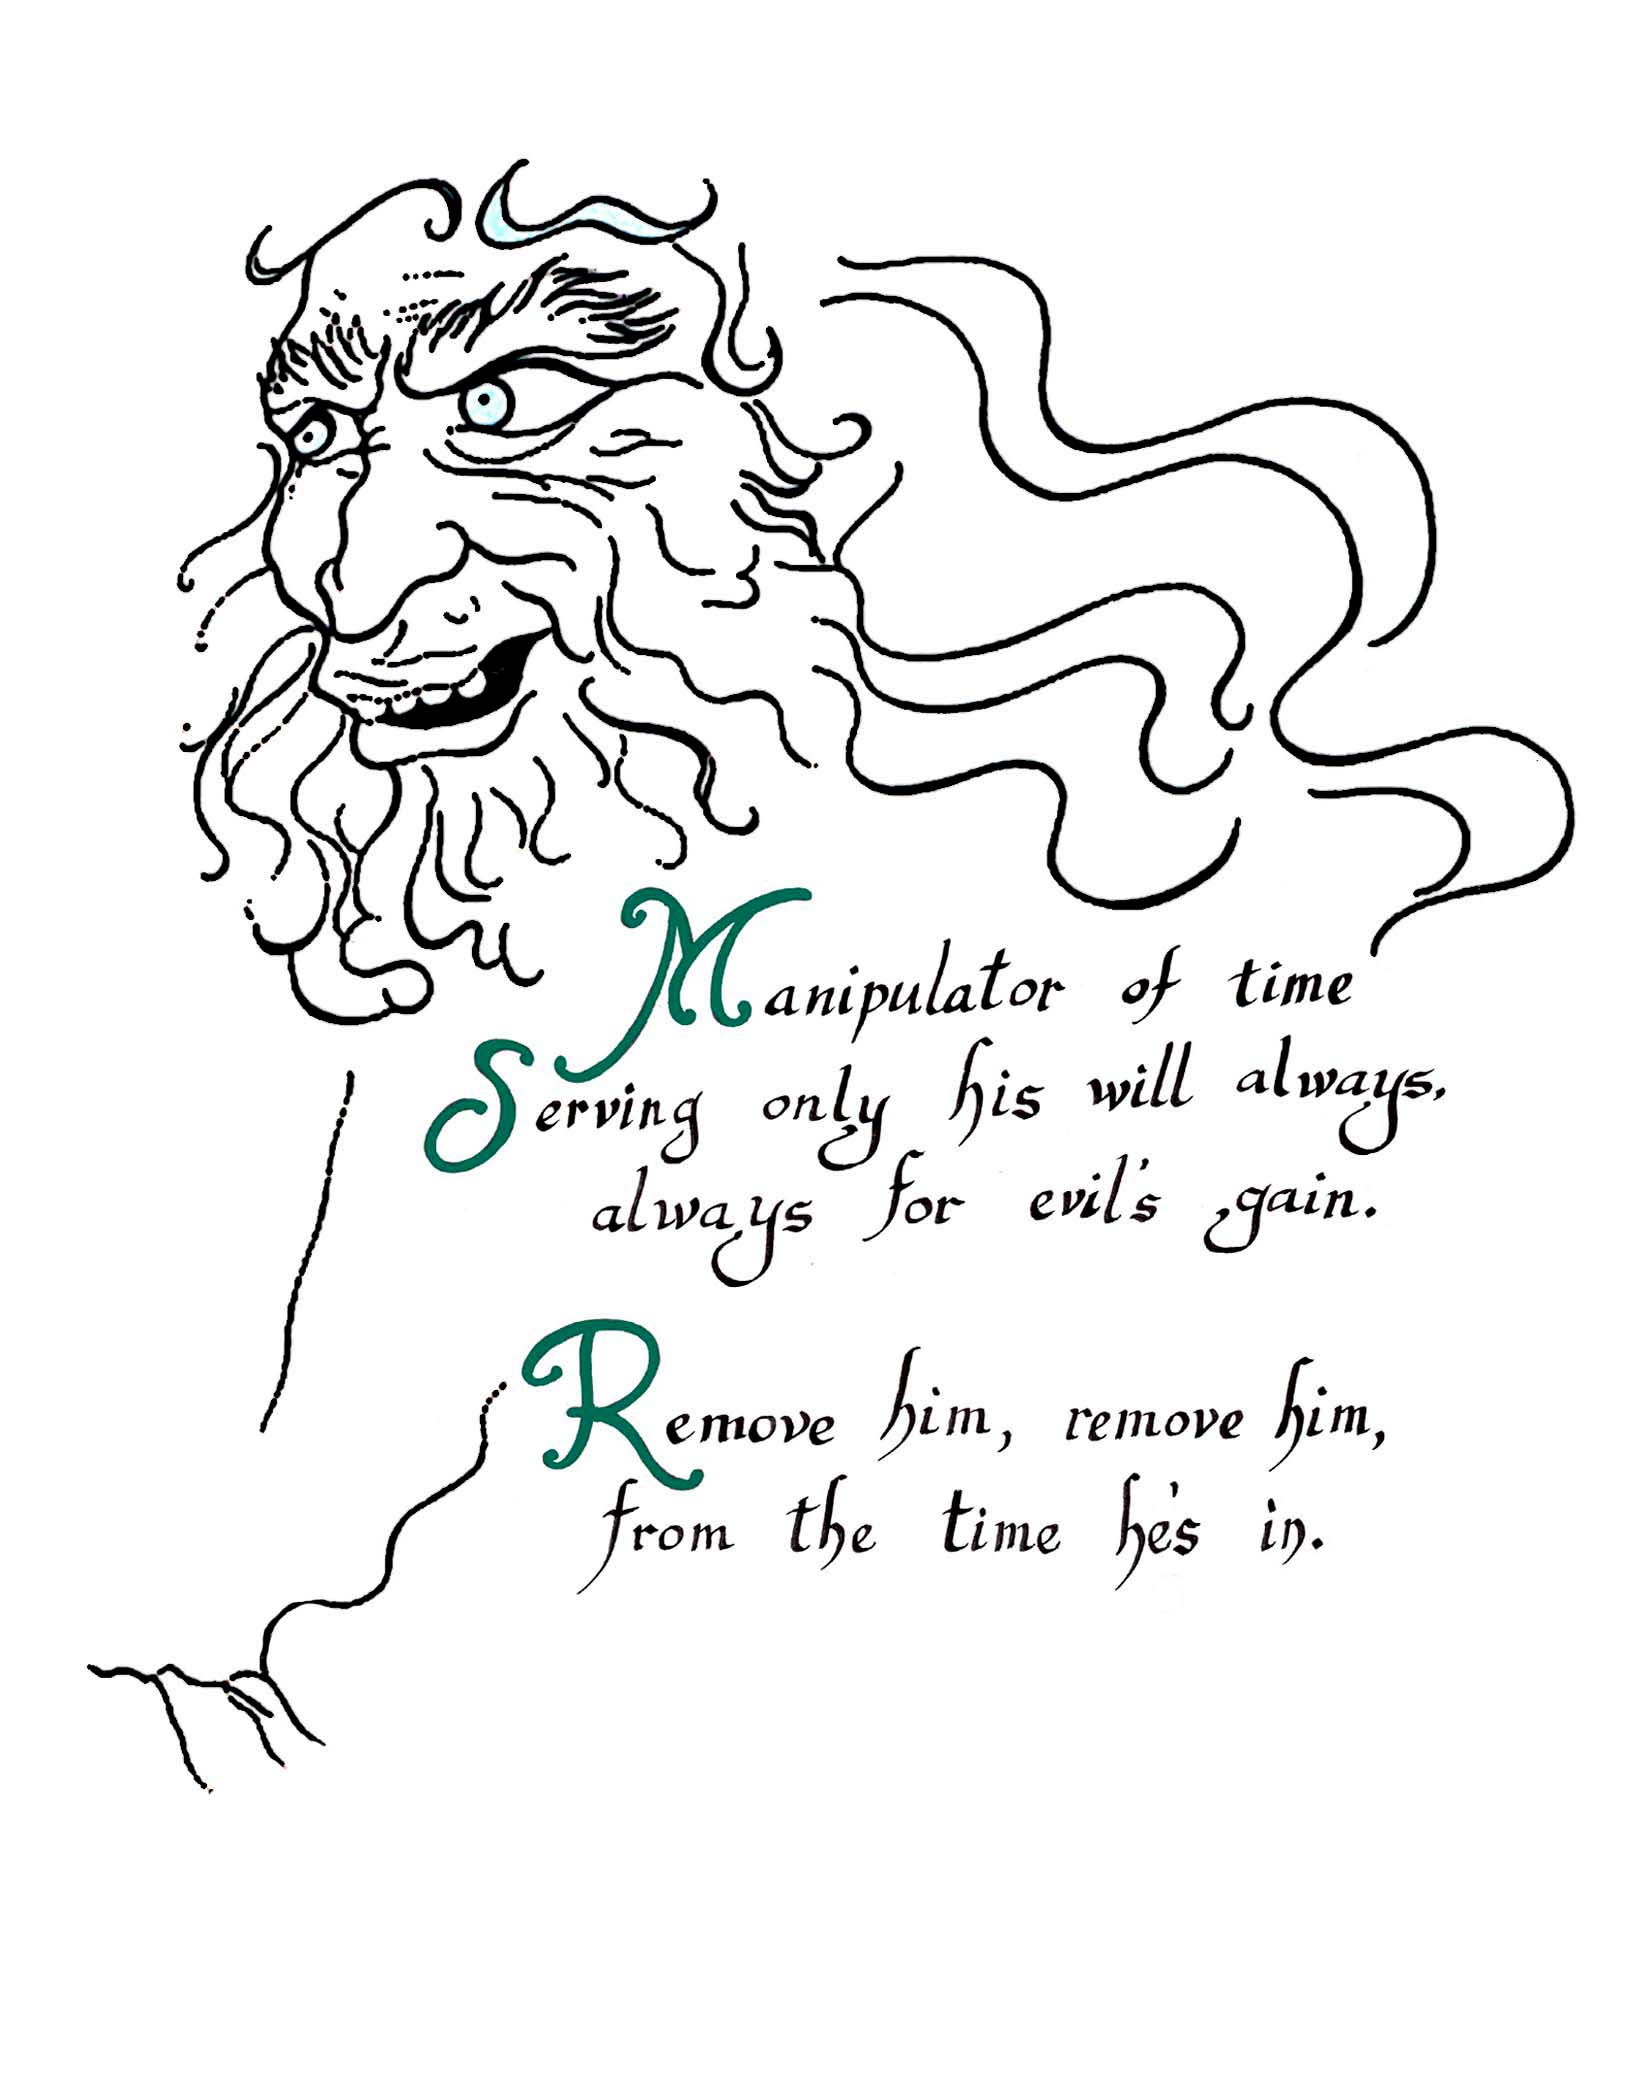 Manipulator of time
Serving only his will always,
always for evil's gain.
Remove him, remove him,
from the time he's in.